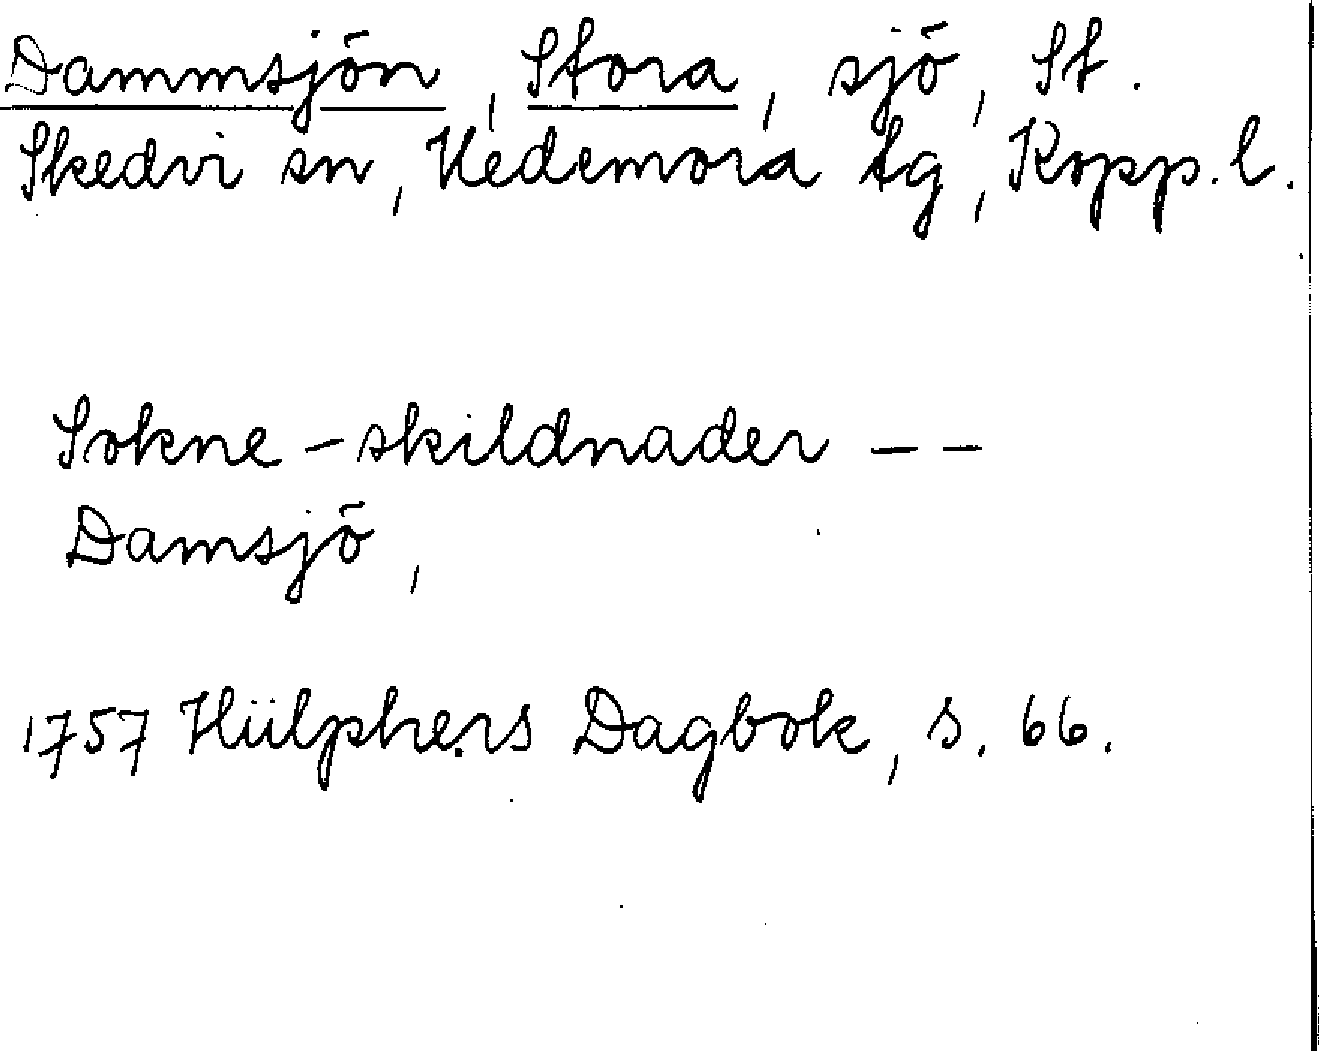 Dammsjön, Stora, sjö, St.
Skedvi sn, Hedemora tg, Kopp. l.
Sokne-skildnader - -
Damsjö,
1757 Hülphers Dagbok, s. 66.